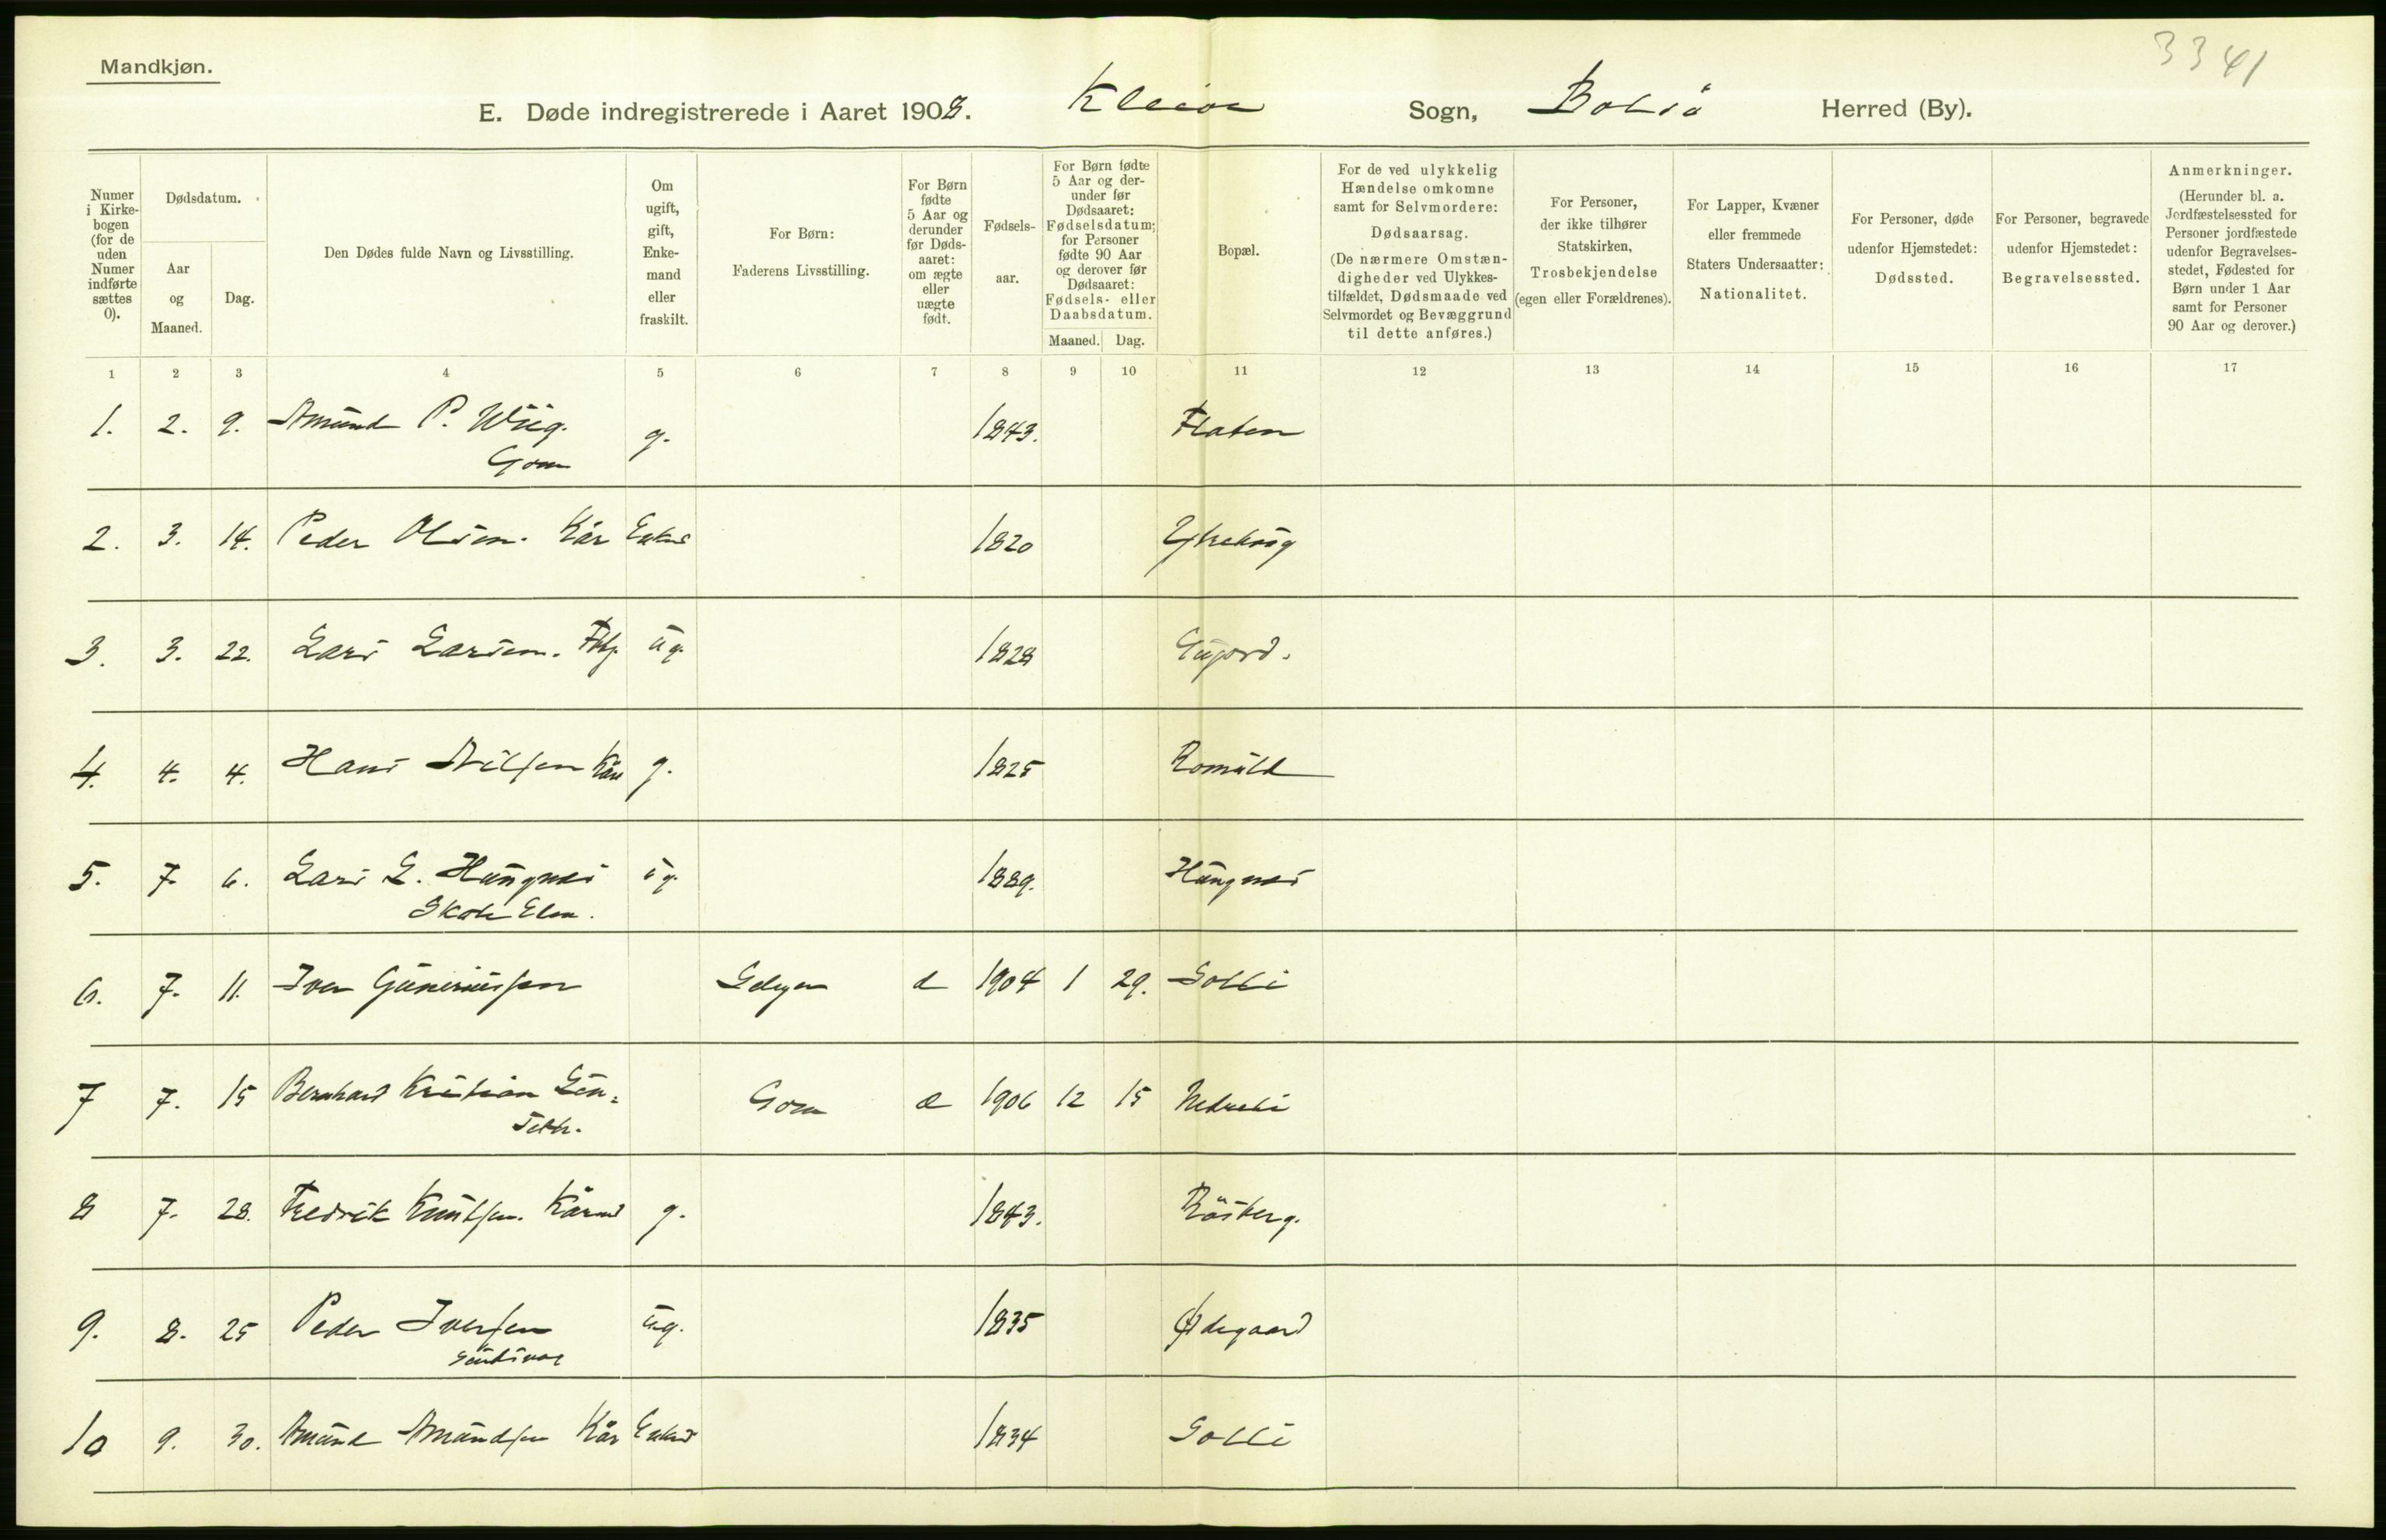 Mandkjøn.
3341
E. Døde indregistrerede i Aaret 1908. Kleive Sogn, Bolsø Herred (By).
Numer i Kirke-bogen (for de uden Numer indførte sættes 0).
Dødsdatum.
Aar og Maaned.
Dag.
Den Dødes fulde Navn og Livsstilling.
Om ugift, gift, Enke-mand eller fraskilt.
For Børn: Faderens Livsstilling.
For Børn fødte 5 Aar og derunder før Døds-aaret: om ægte eller uægte født.
Fødsels-aar.
For Børn fødte 5 Aar og der-under før Dødsaaret: Fødselsdatum; for Personer fødte 90 Aar og derover før Dødsaaret: Fødsels- eller Daabsdatum.
Maaned. Dag.
Bopæl.
For de ved ulykkelig Hændelse omkomne samt for Selvmordere: Dødsaarsag. (De nærmere Omstæn-digheder ved Ulykkes-tilfældet, Dødsmaade ved Selvmordet og Bevæggrund til dette anføres.)
For Personer, der ikke tilhører Statskirken, Trosbekjendelse (egen eller Forældrenes).
For Lapper, Kvæner eller fremmede Staters Undersaatter: Nationalitet.
For Personer, døde udenfor Hjemstedet: Dødssted.
For Personer, begravede udenfor Hjemstedet: Begravelsessted.
Anmerkninger. (Herunder bl. a. Jordfæstelsessted for Personer jordfæstede udenfor Begravelses-stedet, Fødested for Børn under 1 Aar samt for Personer 90 Aar og derover.)
1 2 3 4 5 6 7 8 9 10 11 12 13 14 15 16 17
1. 2. 9. Amund P. Wiig. g. 1843. Flaten
Gom
2. 3. 14. Peder Olsen. Kår Enkm 1820
3. 3. 22. Lars Larsen. ug. 1828
4. 4. 4. Hans Nilsen Kår g. 1825
5. 7. 6. Lars L. Haugnes ug. 1889. Haugnes
Skole Elev.
6. 7. 11. Iver Gunerius sen 1904 1 29. Solli
7 7. 15 Bernhard Kristian 1906 12 15 Nedreli
8 7. 28. Fredrik Knutsen. Kårmd g. 1843. Røsberg.
9. 8. 25 Peder Iversen ug. 1835 Ødegaard
10 9. 30. Amund Amundsen Kår Enkm 1834 Solli